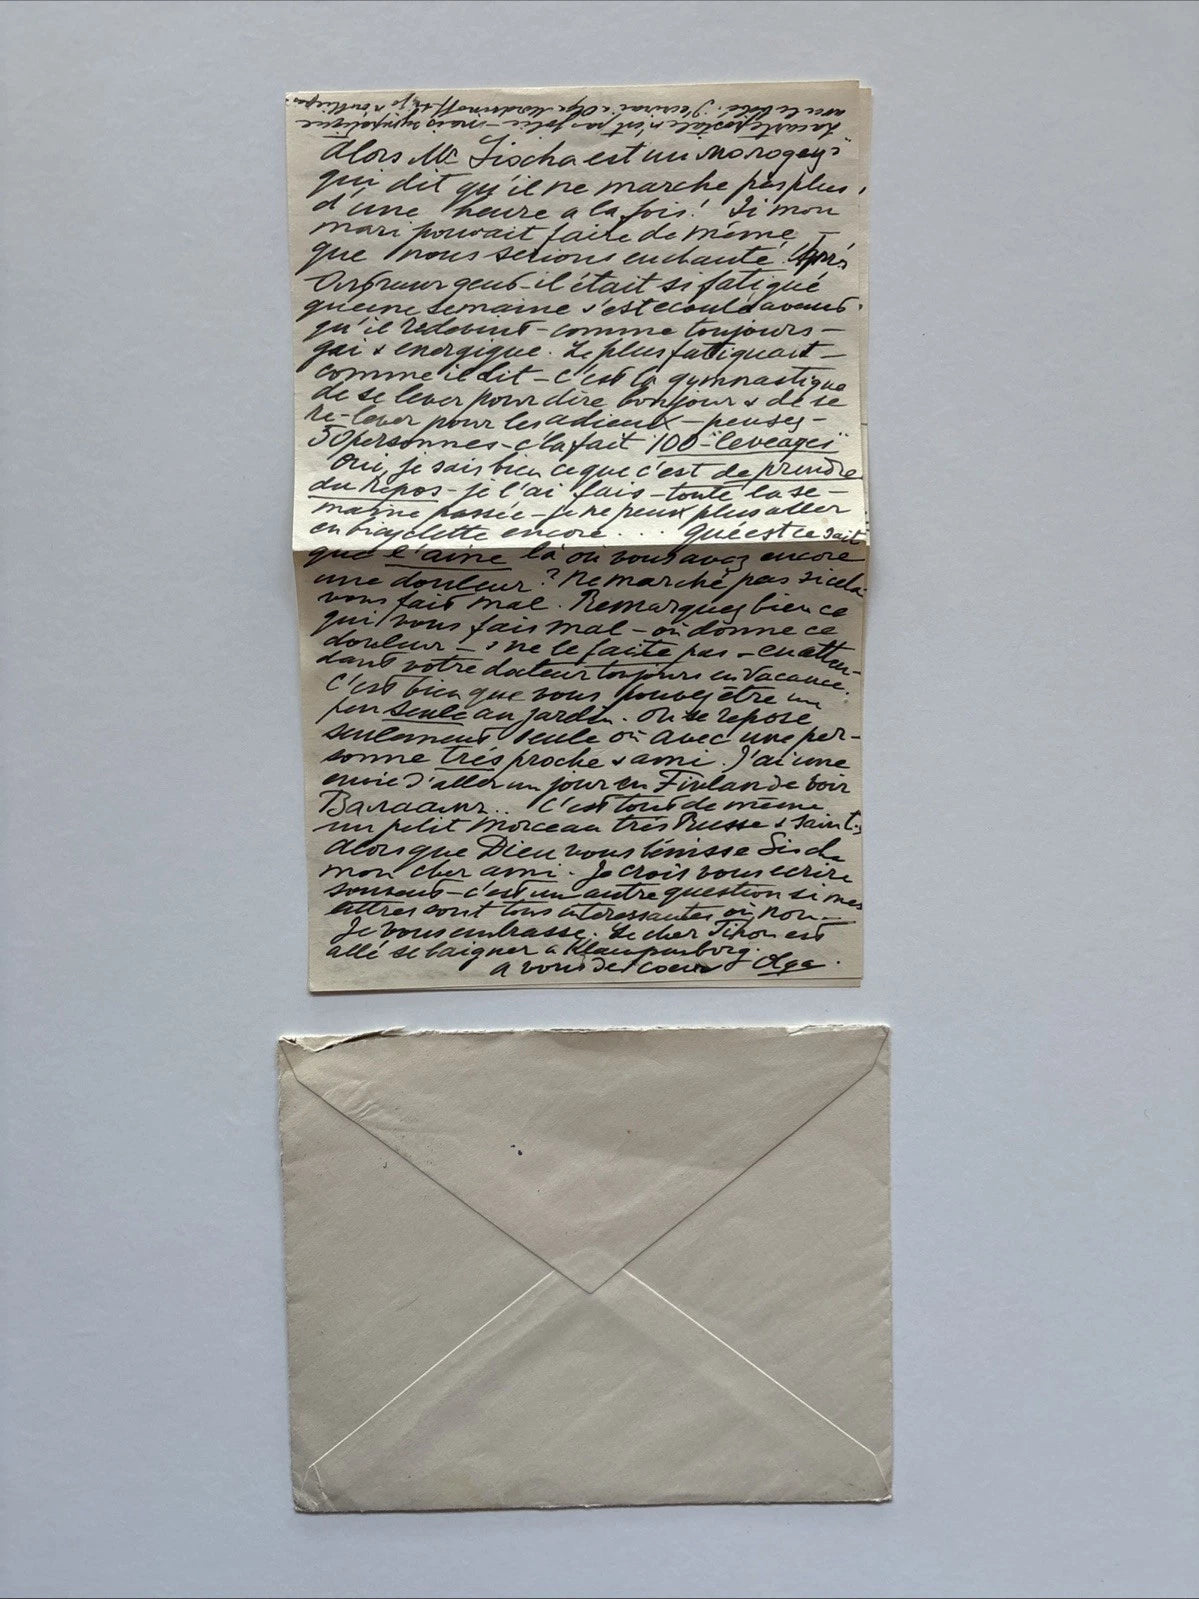 La carte postale n'est pas jolie – mais sympatique
avec le bébé. J'écrirai à Olga que je n'oublie pas
Alors Mr Sischa est un
qui dit qu'il ne marche pas plus
d'une heure a la fois! Si mon
mari pouvait faire de même –
que nous serions enchanté. Après
il était si fatigué
qu'une semaine s'est ecoulé avant
qu'il redevint – comme toujours –
gai & energique. Le plus fatiguant –
comme il dit – c'est la gymnastique
de se lever pour dire bonjour & de se
re-lever pour les adieux – pensez –
50 personnes – c'la fait 100 "leveages"
Oui, je sais bien ce que c'est de prendre
du repos – je l'ai fais – toute la se-
maine passée – je ne peux plus aller
en bicyclette encore . . . Qu'est ce sait
que l'aine là où vous avez encore
une douleur? Ne marché pas si cela
vous fait mal. Remarquez bien ce
qui vous fais mal – où donne ce
douleur – & ne le faite pas – en atten-
dant votre docteur toujours en vacance.
C'est bien que vous pouvez être un
peu seule au jardin. On se repose
seulement seule où avec une per-
sonne très proche & ami. J'ai une
envie d'aller un jour en Finlande voir
C'est tout de même
un petit morceau très Russe & saint.
Alors que Dieu vous bénisse Sischa
mon cher ami. Je crois vous ecrire
souvent – c'est un autre question si mes
lettres sont tous interessantes où non –
Je vous embrasse. Le cher Tihon est
allé se baigner a Klampenborg.
a vous de coeur Olga.